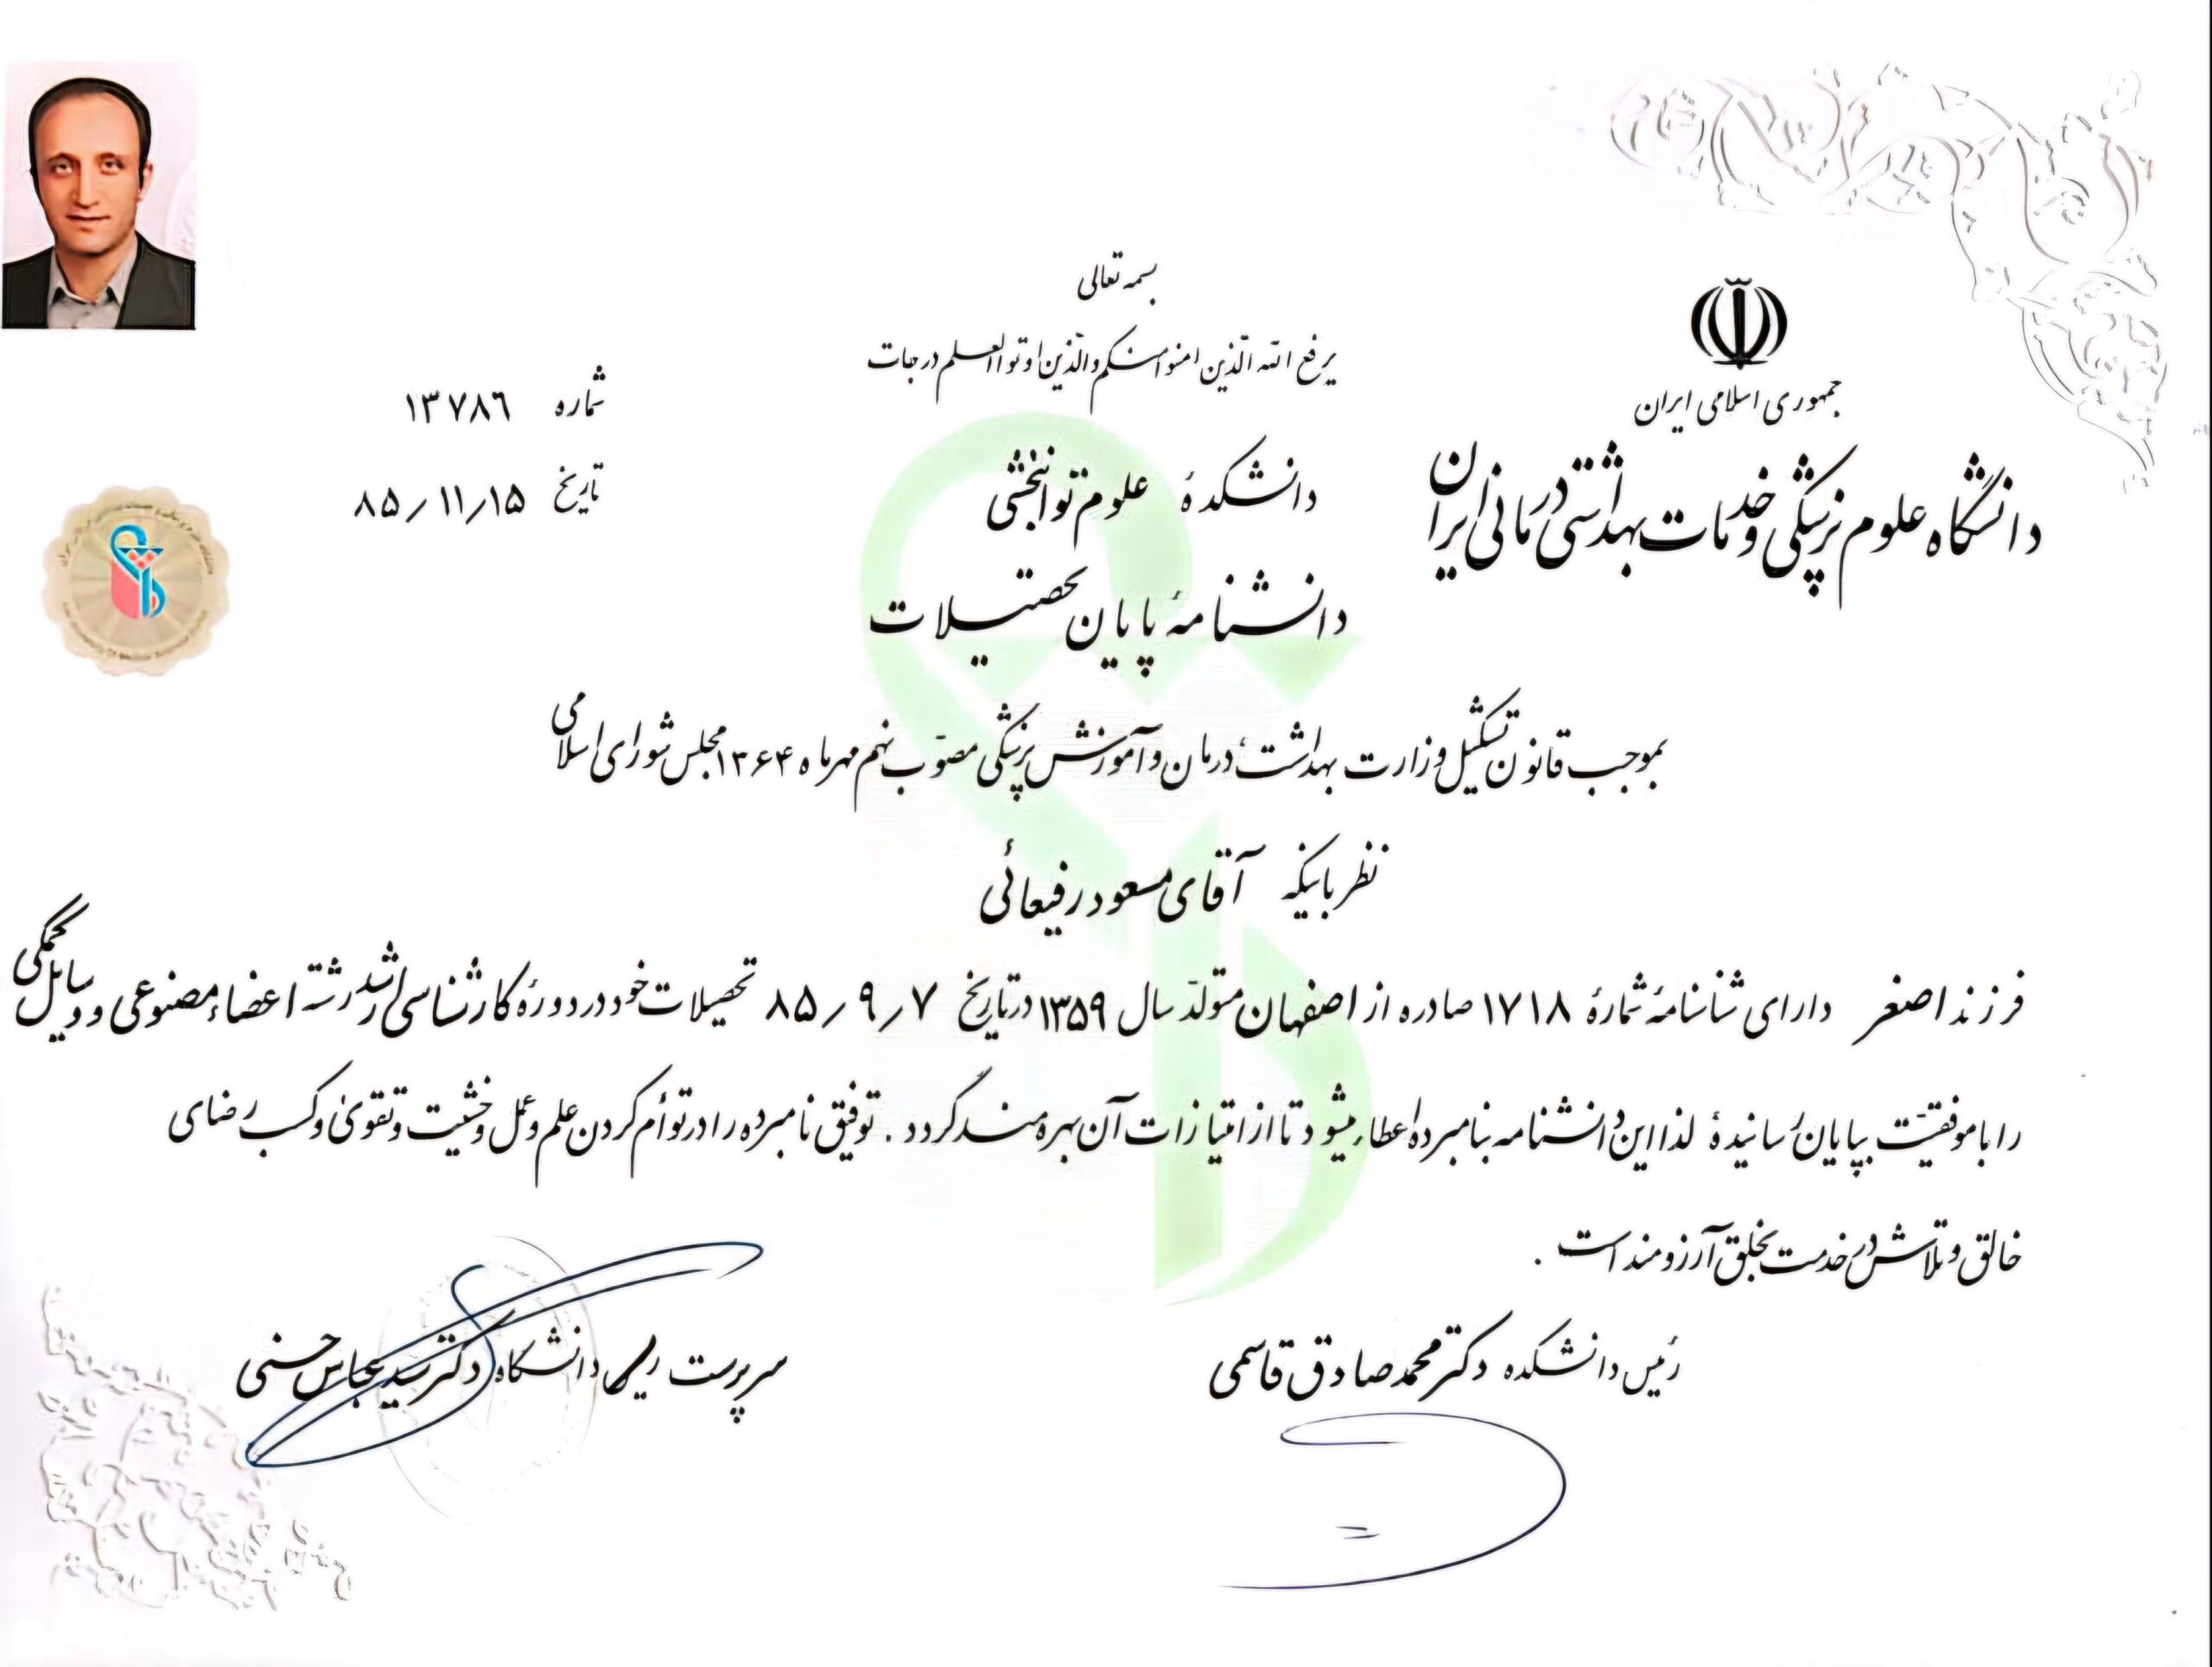 بسمه تعالی
یرفع الله الّذین امنوا منکم و الّذین اوتوا العلم درجات
جمهوری اسلامی ایران
دانشگاه علوم پزشکی و خدمات بهداشتی درمانی ایران
شماره ۱۳۷۸۶
تاریخ ۸۵/۱۱/۱۵
دانشکدهٔ علوم توانبخشی
دانشنامهٔ پایان تحصیلات
بموجب قانون تشکیل وزارت بهداشت، درمان و آموزش پزشکی مصوّب نهم مهرماه ۱۳۶۴ مجلس شورای اسلامی
نظر باینکه آقای مسعود رفیعائی
فرزند اصغر دارای شناسنامهٔ شمارهٔ ۱۷۱۸ صادره از اصفهان متولّد سال ۱۳۵۹ در تاریخ ۸۵/۹/۷ تحصیلات خود در دورهٔ کارشناسی ارشد رشته اعضاء مصنوعی و وسایل کمکی
را با موفقیّت بپایان رسانیدهٔ لذا این دانشنامه بنامبرده اعطاء میشود تا از امتیازات آن بهره‌مند گردد. توفیق نامبرده را در توأم کردن علم و عمل و خشیت و تقوی و کسب رضای
خالق و تلاش در خدمت بخلق آرزومند است.
رئیس دانشکده دکتر محمد صادق قاسمی
سرپرست رئیس دانشگاه دکتر سید عباس حسنی